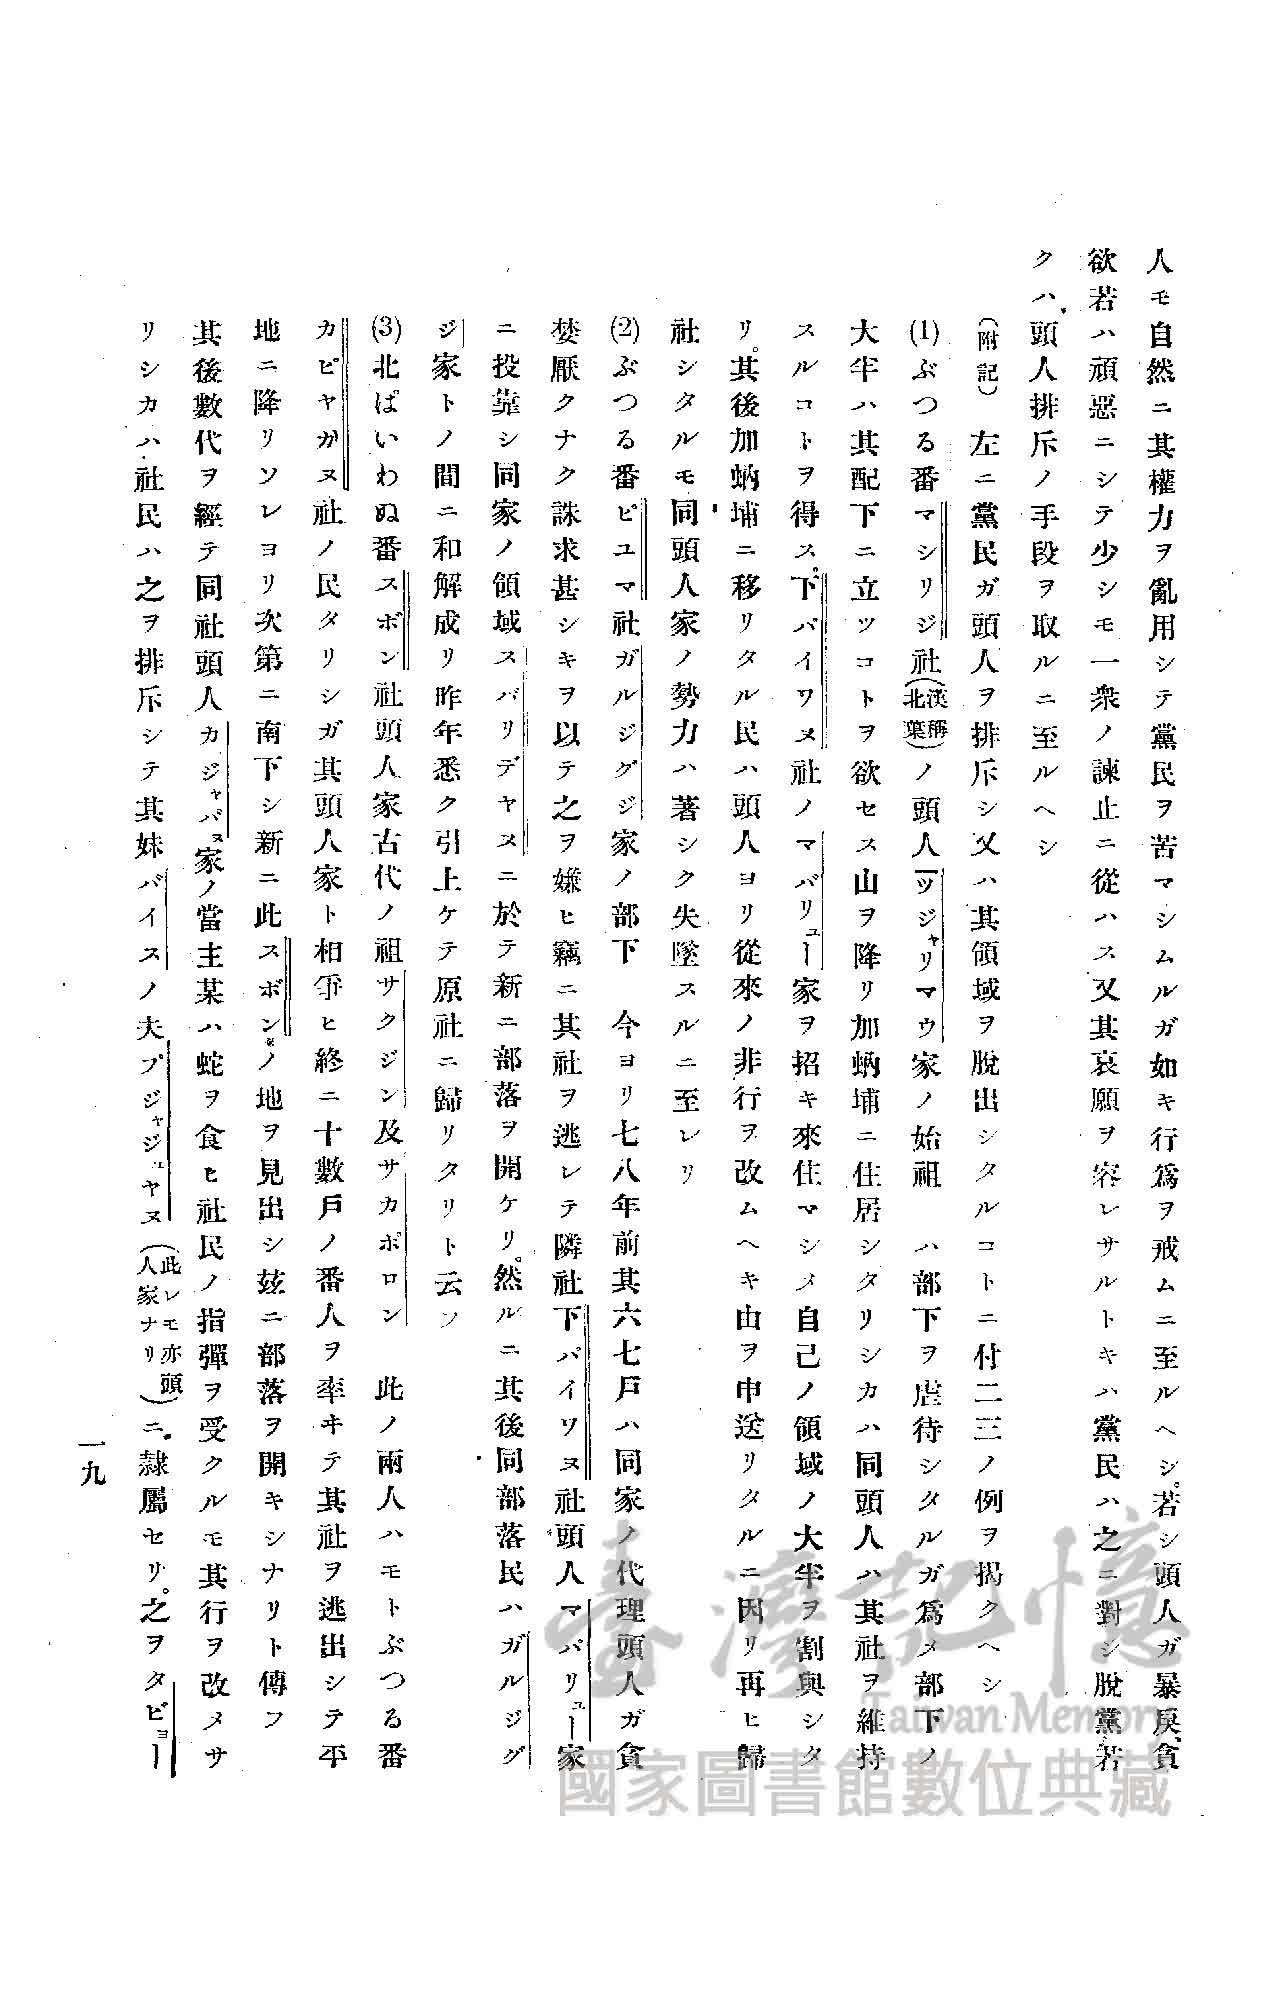 人モ自然ニ其權力ヲ亂用シテ黨民ヲ苦マシムルガ如キ行爲ヲ戒ムニ至ルヘシ。若シ頭人ガ暴戾、貪
欲若ハ頑惡ニシテ少シモ一衆ノ諫止ニ從ハス又其哀願ヲ容レサルトキハ黨民ハ之ニ對シ脫黨若
クハ頭人排斥ノ手段ヲ取ルニ至ルヘシ
(附記) 左ニ黨民ガ頭人ヲ排斥シ又ハ其領域ヲ脫出シタルコトニ付二三ノ例ヲ揭クヘシ
(1)ぶつる番マシリジ社(漢稱北葉)ノ頭人ツジャリマウ家ノ始祖 ハ部下ヲ虐待シタルガ爲メ部下ノ
大半ハ其配下ニ立ツコトヲ欲セス山ヲ降リ加蚋埔ニ住居シタリシカハ同頭人ハ其社ヲ維持
スルコトヲ得ス。下パイワヌ社ノマバリュー家ヲ招キ來住マシメ自己ノ領域ノ大半ヲ割與シタ
リ。其後加蚋埔ニ移リタル民ハ頭人ヨリ從來ノ非行ヲ改ムヘキ由ヲ申送リタルニ因リ再ヒ歸
社シタルモ同頭人家ノ勢力ハ著シク失墜スルニ至レリ
(2)ぶつる番ピユマ社ガルジグジ家ノ部下 今ヨリ七八年前其六七戶ハ同家ノ代理頭人ガ貪
婪厭クナク誅求甚シキヲ以テ之ヲ嫌ヒ竊ニ其社ヲ逃レテ隣社下パイワヌ社頭人マバリュー家
ニ投靠シ同家ノ領域スバリデヤスニ於テ新ニ部落ヲ開ケリ。然ルニ其後同部落民ハガルジグ
ジ家トノ間ニ和解成リ昨年悉ク引上ケテ原社ニ歸リタリト云フ
(3)北ぱいわぬ番スボン社頭人家古代ノ祖サクジン及サカポロン 此ノ兩人ハモトぶつる番
カピヤガヌ社ノ民タリシガ其頭人家ト相爭ヒ終ニ十數戶ノ番人ヲ率ヰテ其社ヲ逃出シテ平
地ニ降リソレヨリ次第ニ南下シ新ニ此スボンノ地ヲ見出シ玆ニ部落ヲ開キシナリト傳フ
其後數代ヲ經テ同社頭人カジャバヌ家ノ當主某ハ蛇ヲ食ヒ社民ノ指彈ヲ受クルモ其行ヲ改メサ
リシカハ社民ハ之ヲ排斥シテ其妹バイスノ夫プジャジュヤヌ(此レモ亦頭人家ナリ)ニ隷屬セリ。之ヲタビョー
一九
臺灣記憶
Taiwan Memory
國家圖書館數位典藏